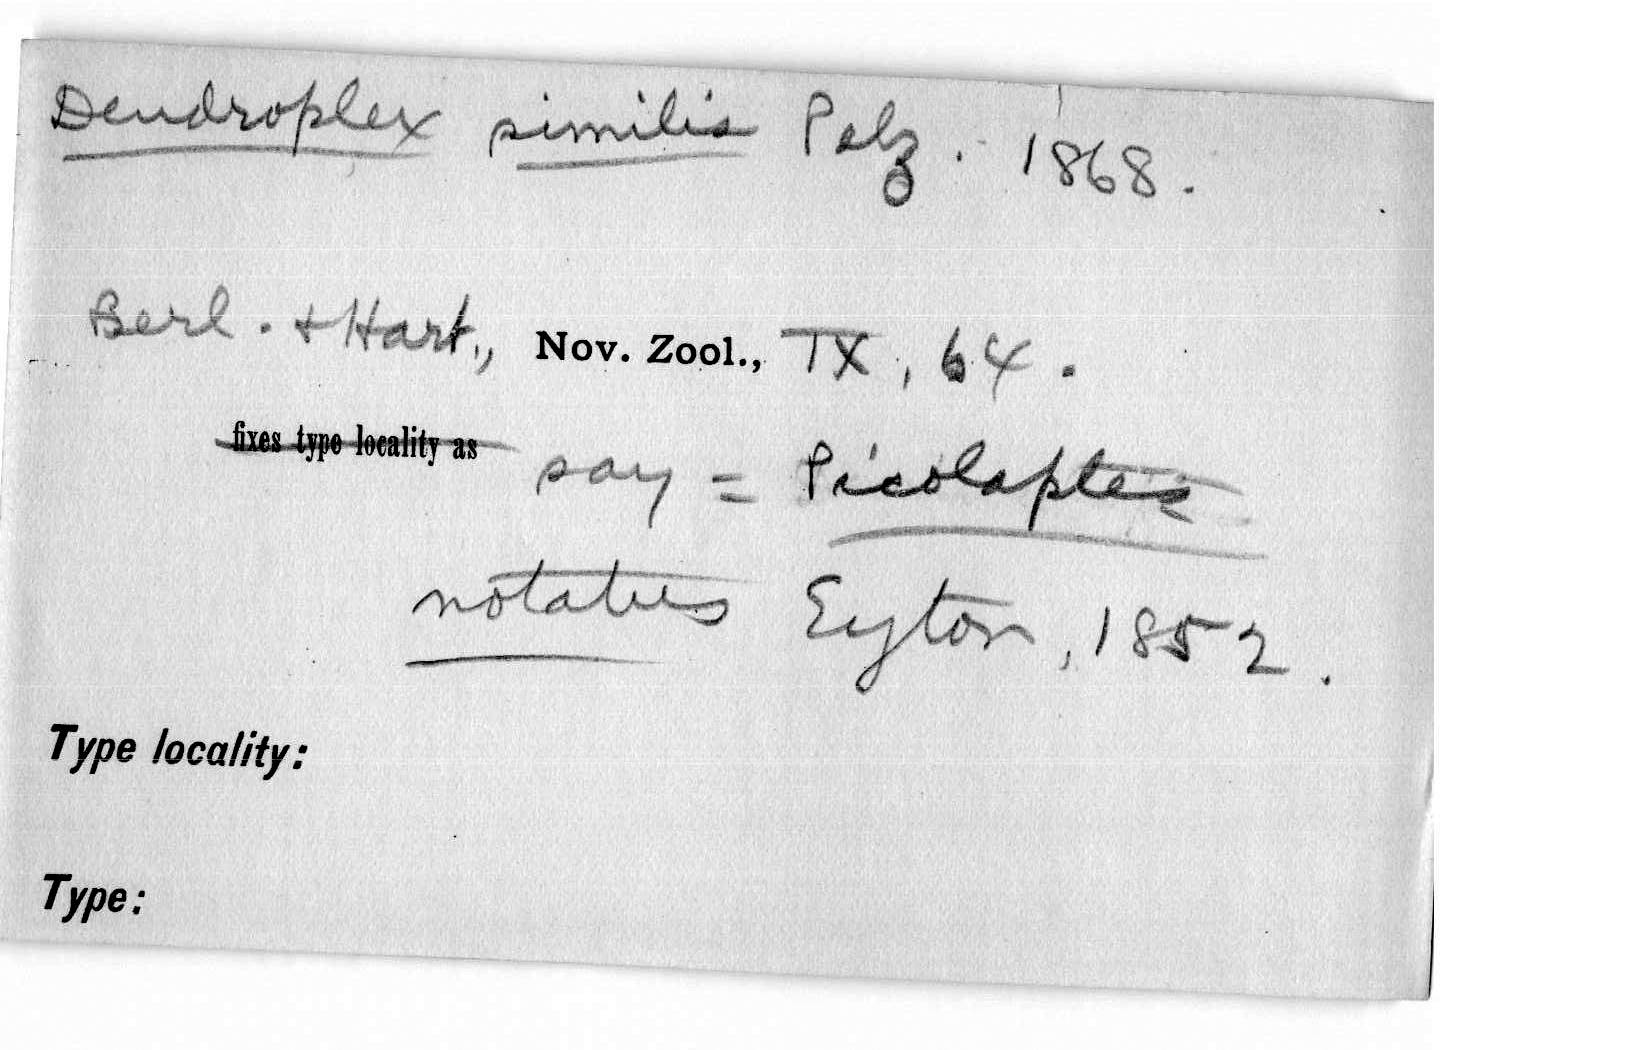 Dendroplex similis Pelz. 1868.
Berl. + Hart., Nov. Zool., IX, 64.
fixes type locality as say = Picolaptes
notatus Eyton, 1852.
Type locality:
Type: